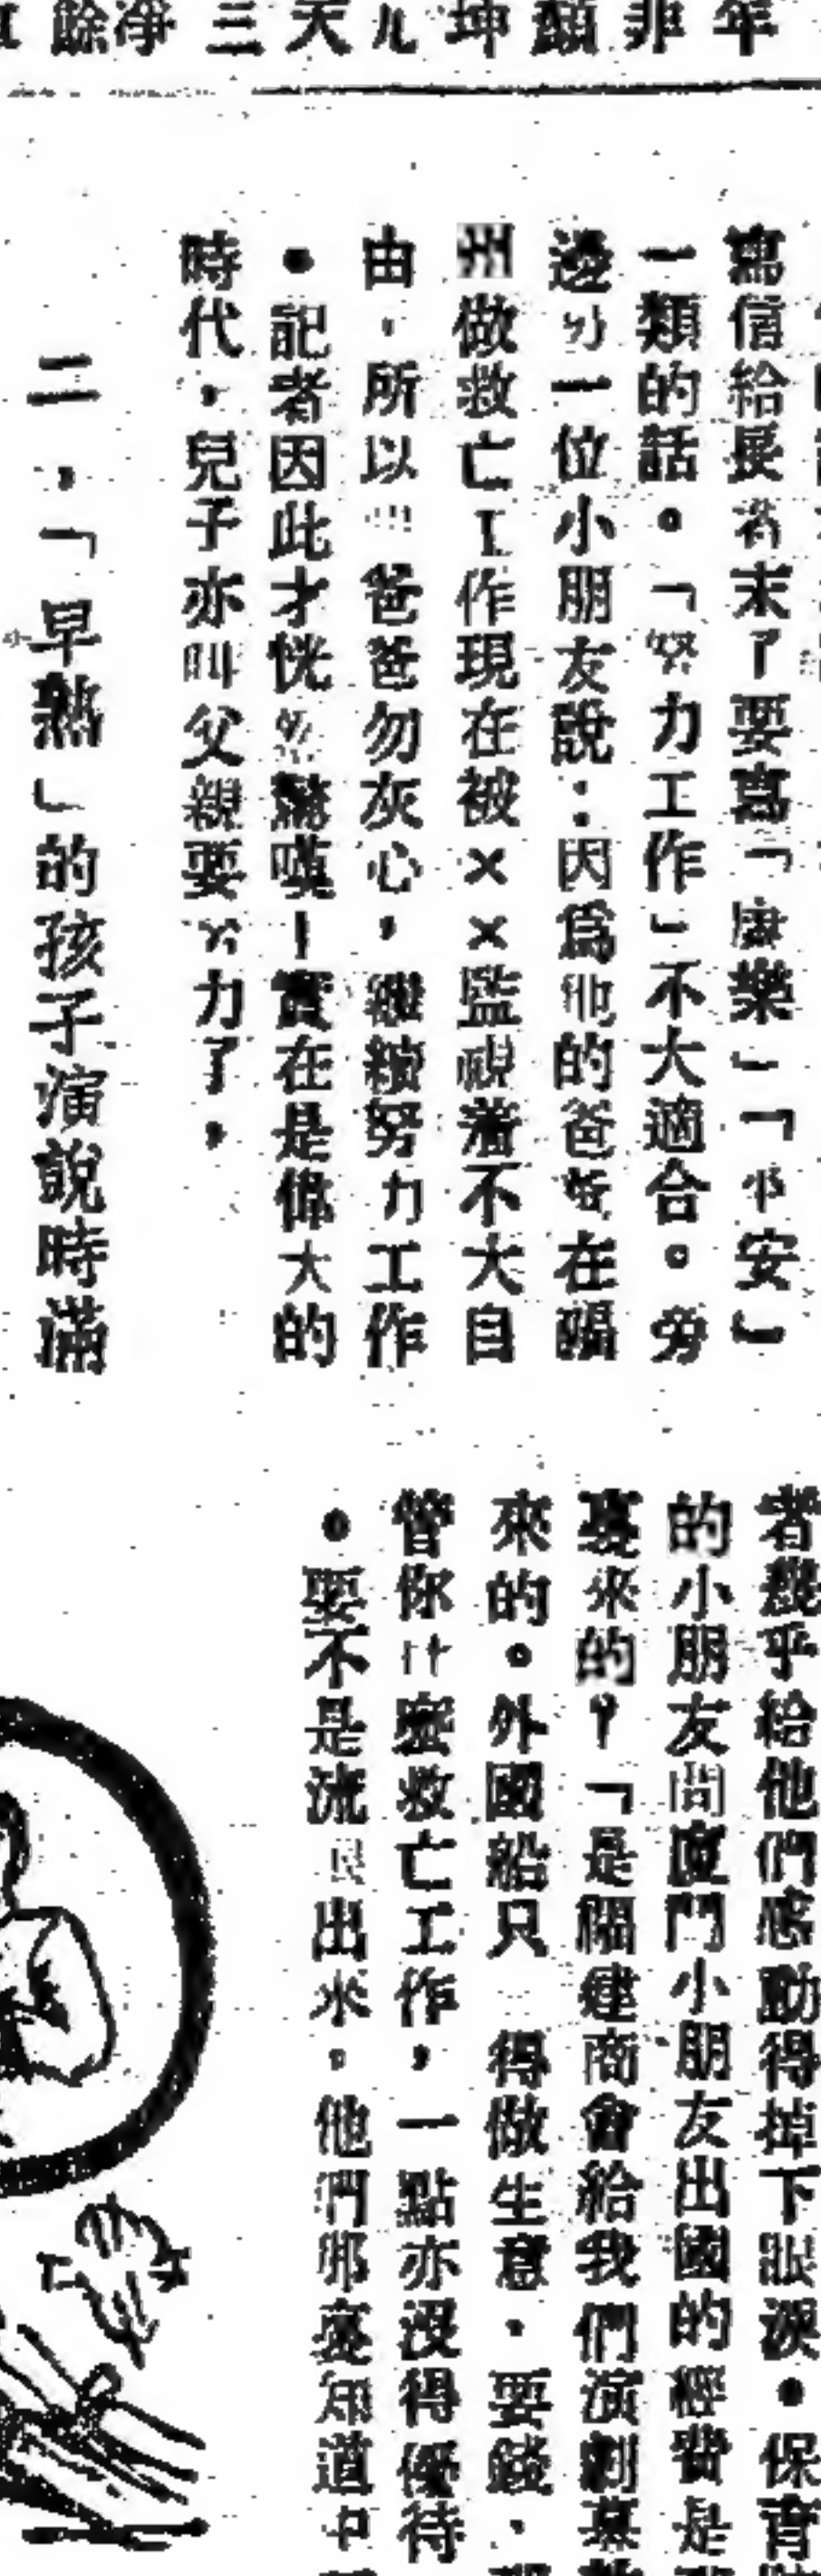 年非顏坤九天三淨餘
寫信給長者末了要寫「康樂」「平安」
一類的話。「努力工作」不大適合。旁
邊的一位小朋友說：因爲他的爸爸在福
州做救亡工作現在被××監視着不大自
由，所以叫爸爸勿灰心，繼續努力工作
。記者因此才恍然驚嘆！實在是偉大的
時代，兒子亦叫父親要努力了，
二，「早熟」的孩子演說時滿
者幾乎給他們感動得掉下眼淚。保育
的小朋友問廈門小朋友出國的經費是
裏來的？「是福建商會給我們演劇募
來的。外國船只 得做生意，要錢，
管你什麼救亡工作，一點亦沒得優待
。要不是流 出來，他們那裏知道中